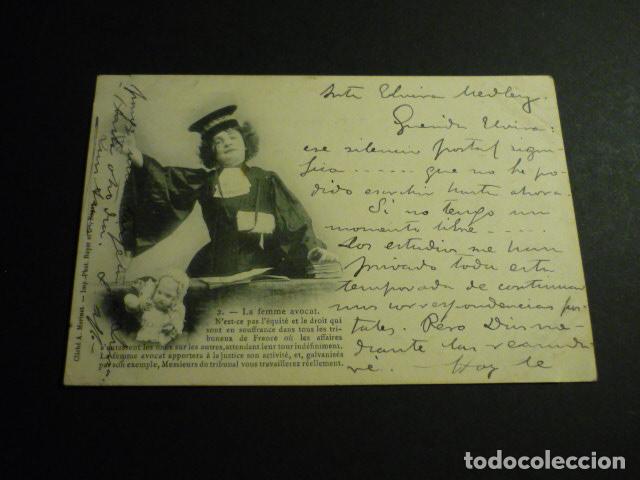 Srta Elvira Medley.
Querida Elvira:
ese silencio postal signi-
fica ...... que no he po-
dido escribir hasta ahora.
Si no tengo un
momento libre .....
Los estudios me han
privado toda esta
temporada de continuar
mis correspondencias pos-
tales. Pero Dios me-
diante las reanuda-
re. Hoy te
2. — La femme avocat.
N'est-ce pas l'équité et le droit qui
sont en souffrance dans tous les tri-
buneux de France où les affaires
s'entassent les unes sur les autres, attendant leur tour indéfiniment.
La femme avocat apportera à la justice son activité, et, galvanisés
par son exemple, Messieurs du tribunal vous travaillerez réellement.
Cliché A. — Imp.-Phot.
todocoleccion
todocoleccion.net